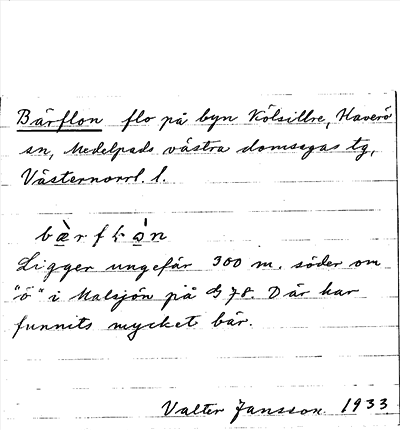 Bärflon flo på byn Kölsillre, Haverö
sn, Medelpads västra domsagas tg,
Västernorrl. l.
bæ̀rfłòn
Ligger ungefär 300 m. söder om
"ö" i Malsjön på G 78. Där har
funnits mycket bär.
Valter Jansson 1933